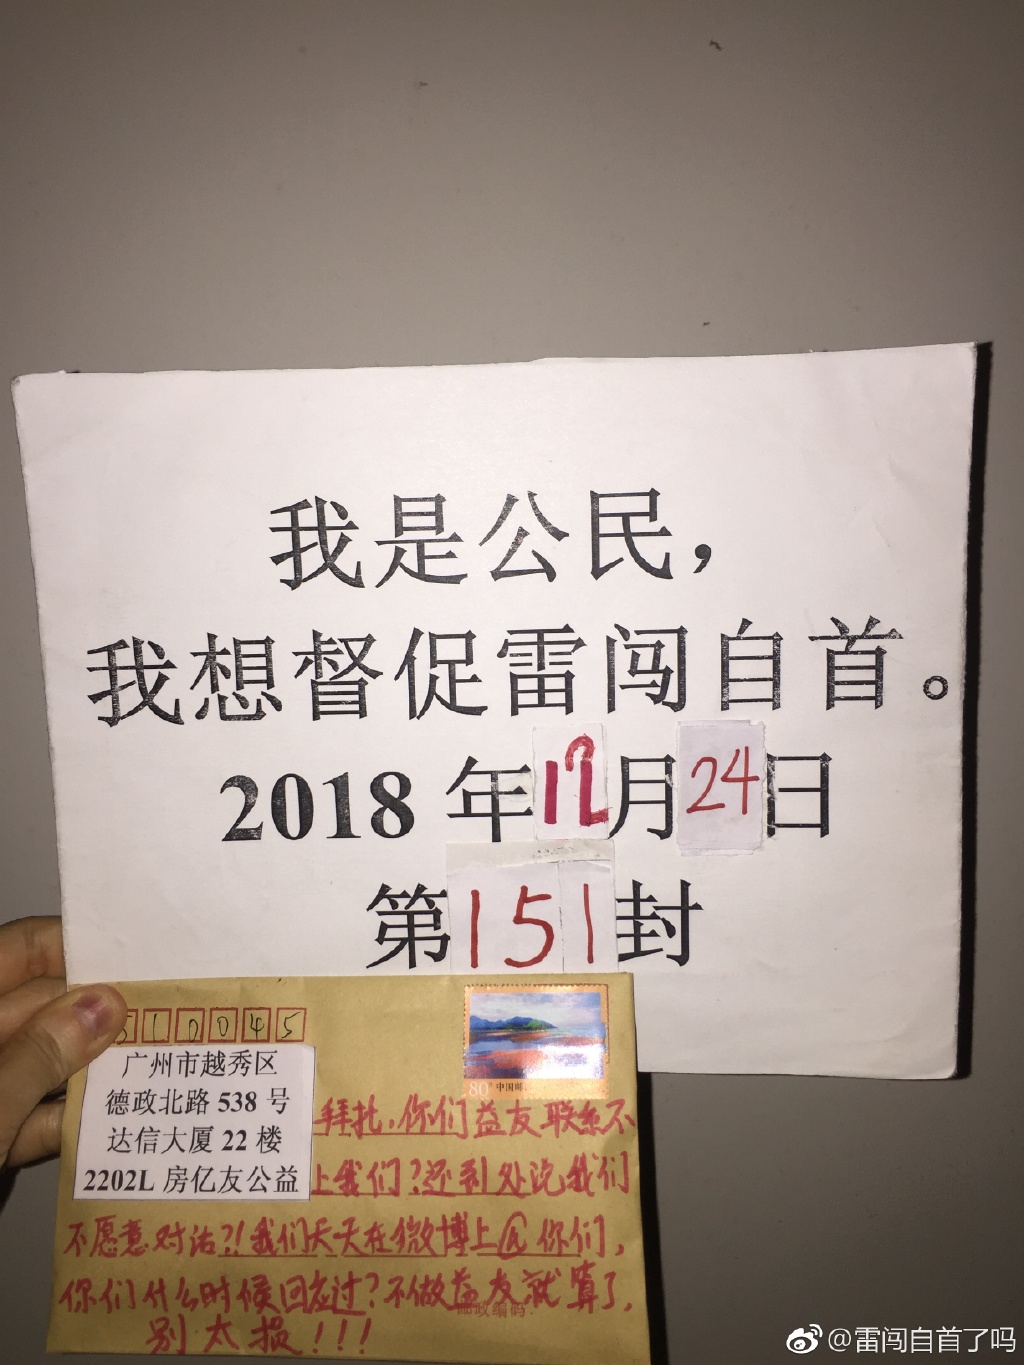 我是公民，
我想督促雷闯自首。
2018年12月24日
第151封
510045
广州市越秀区
德政北路538号
达信大厦22楼
2202L房亿友公益
80分 中国邮
拜托，你们益友联系不
上我们？还到处说我们
不愿意对话？！我们天天在微博上@你们，
你们什么时候回应过？不做益友就算了，
邮政编码：
别太损！！！
@雷闯自首了吗